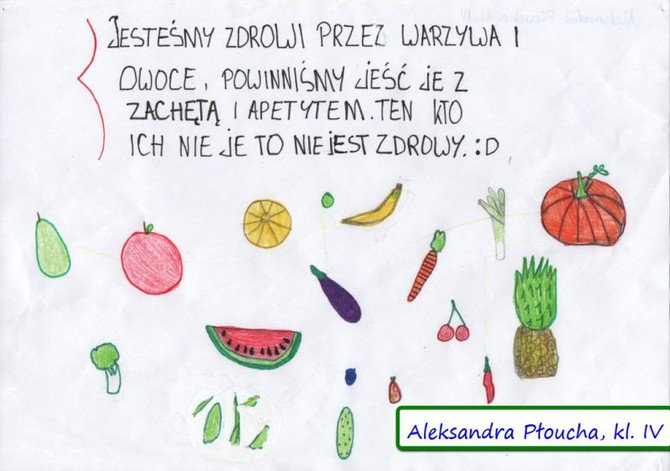 JESTEŚMY ZDROWI PRZEZ WARZYWA I
OWOCE, POWINNIŚMY JEŚĆ JE Z
ZACHĘTĄ I APETYTEM. TEN KTO
ICH NIE JE TO NIE JEST ZDROWY. :D
Aleksandra Płoucha, kl. IV